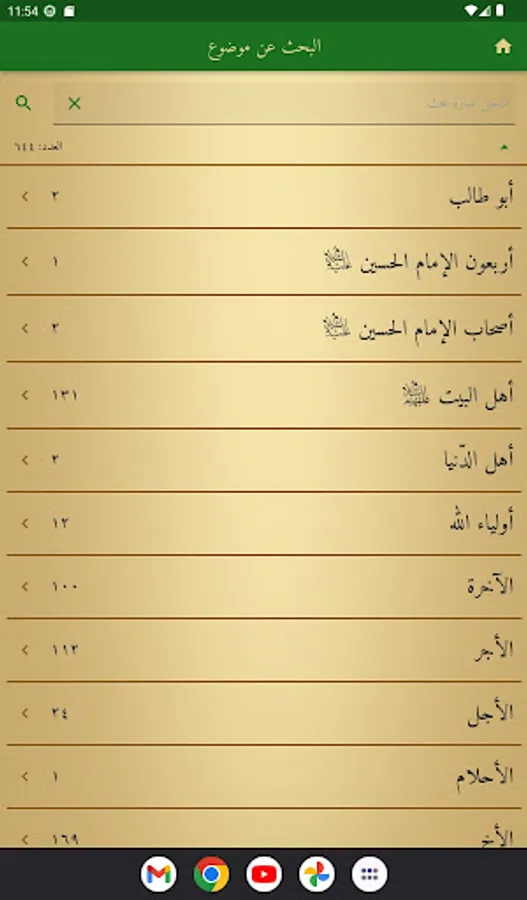 11:54
البحث عن موضوع
أدخل عبارة بحث
العدد: ٦٤٤
أبو طالب ٢
أربعون الإمام الحسين ١
أصحاب الإمام الحسين ٢
أهل البيت ١٣١
أهل الدّنيا ٢
أولياء الله ١٢
الآخرة ١٠٠
الأجر ١١٢
الأجل ٢٤
الأحلام ١
الأخ ١٦٩